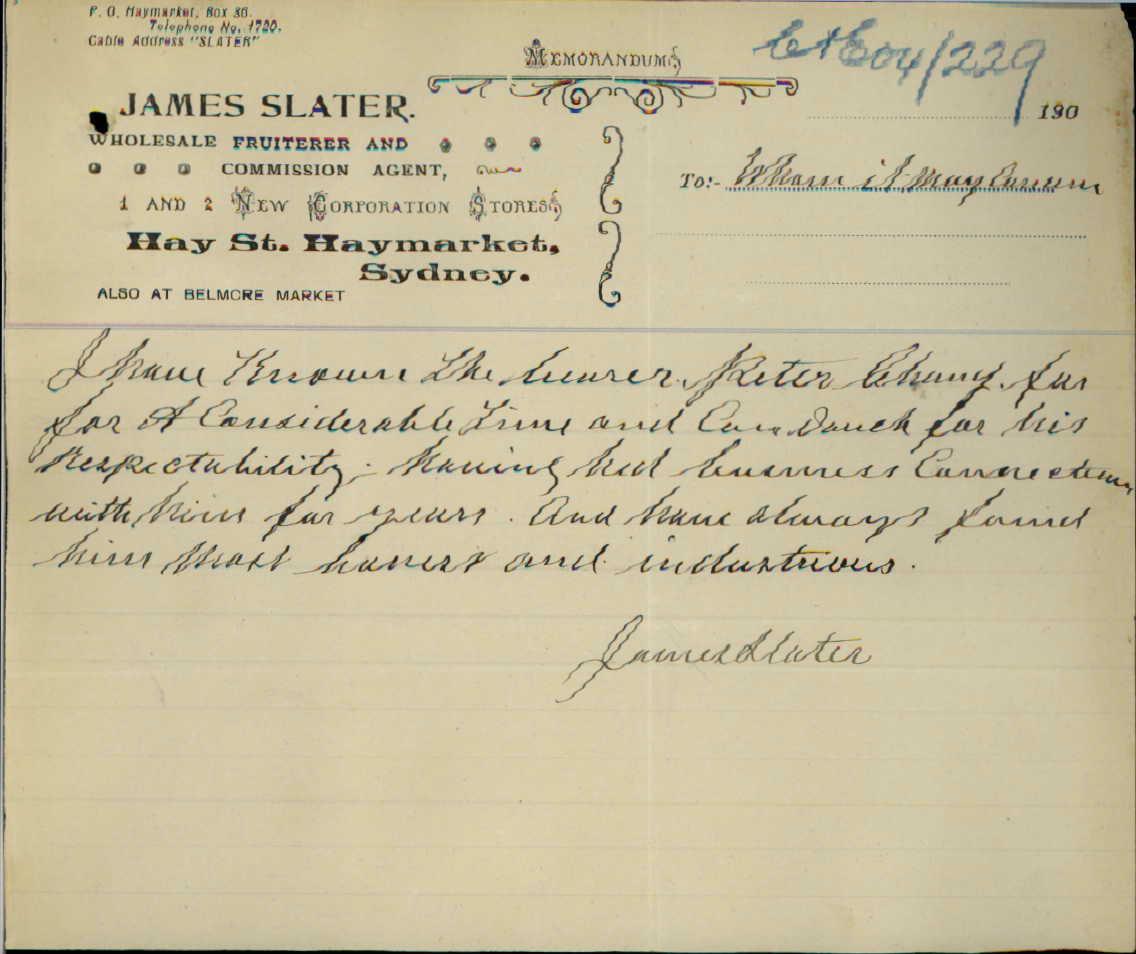 P. O. Haymarket, Box 36.
Telephone No. 1720.
Cable Address "SLATER"
MEMORANDUM
C&E04/229
JAMES SLATER.
190
WHOLESALE FRUITERER AND
COMMISSION AGENT,
To:- Whom it May Concern
1 AND 2 NEW CORPORATION STORES
Hay St. Haymarket,
Sydney.
ALSO AT BELMORE MARKET
I have Known the bearer Peter Chong for
for A Considerable Time and Can Vouch for his
Respectability. having had business Connections
with him for years. And have always found
him Most honest and industrious.
James Slater